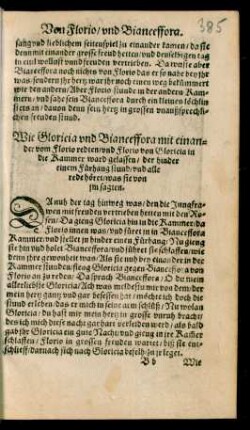 Von Florio/ vnd Bianceffora.
385
sang vnd lieblichem seitenspiel zu einander kamen/ da sie
denn mit einander grosse freud hetten/ vnd denselbigen tag
in eitel wollust vnd freuden vertrieben. Da wuste aber
Bianceffora noch nichts von Florio das er so nahe bey ihr
was/ sondern jhr war noch jhr noch einen weg bekümmert
wie den andern. Aber Florio stunde in der andern Kam-
mern/ vnd sahe sein Bianceffora durch ein kleines löchlin
stets an/ dauon denn sein hertz in grossen vnaußsprech-
lichen freuden stund.
Wie Gloricia vnd Bianceffora mit einan-
der vom Florio redten/ vnd Florio von Gloricia in
die Kammer ward gelassen/ der hinder
einem Fürhang stund/ vnd alle
rede höret/ was sie von
jm sagten.
DA nuh der tag hinweg was/ den die Jungfra-
wen mit freuden vertrieben hetten mit den Ro-
sen/ Da gieng Gloricia hin in die Kammer/ da
Florio innen was/ vnd füret in in Bianceffora
Kammer/ vnd stellet jn hinder einen Fürhang/ Nu gieng
sie hin vnd holet Bianceffora/ vnd führet sie schlaffen/ wie
denn ihre gewonheit was/ Als sie nuh bey einander in der
Kammer stunden/ fieng Gloricia gegen Bianceffora von
Florio an zu reden/ Da sprach Bianceffora/ O du mein
allerliebste Gloricia/ Ach was meldestu mir von dem/ der
mein hertz gantz vnd gar besessen hat/ möchte ich doch die
stund erleben/ das er mich in seine arm schlösse/ Nu wolan
Gloricia/ du hast mir mein hertz in grosse vnruh bracht/
den ich mich diese nacht
gab jhr Gloricia ein gute Nacht/ vnd gieng in ire Kamer
schlaffen/ Florio in grossen freuden wartet/ biß sie ent-
schlieff/ darnach sich nach Gloricia
B b
Wie